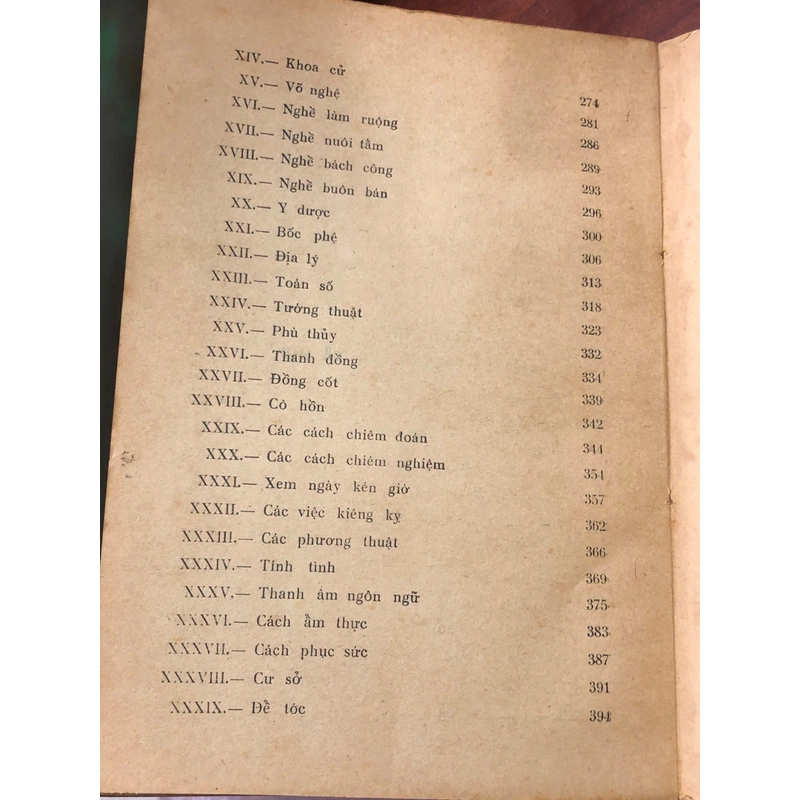 XIV.— Khoa cử 274
XV.— Võ nghệ 281
XVI.— Nghề làm ruộng 286
XVII.— Nghề nuôi tằm 289
XVIII.— Nghề bách công 293
XIX.— Nghề buôn bán 296
XX.— Y dược 300
XXI.— Bốc phệ 306
XXII.— Địa lý 313
XXIII.— Toán số 318
XXIV.— Tướng thuật 323
XXV.— Phù thủy 332
XXVI.— Thanh đồng 334
XXVII.— Đồng cốt 339
XXVIII.— Cô hồn 342
XXIX.— Các cách chiêm đoán 344
XXX.— Các cách chiêm nghiệm 354
XXXI.— Xem ngày kén giờ 357
XXXII.— Các việc kiêng kỵ 362
XXXIII.— Các phương thuật 366
XXXIV.— Tính tình 369
XXXV.— Thanh âm ngôn ngữ 375
XXXVI.— Cách ẩm thực 383
XXXVII.— Cách phục sức 387
XXXVIII.— Cư sở 391
XXXIX.— Để tóc 394